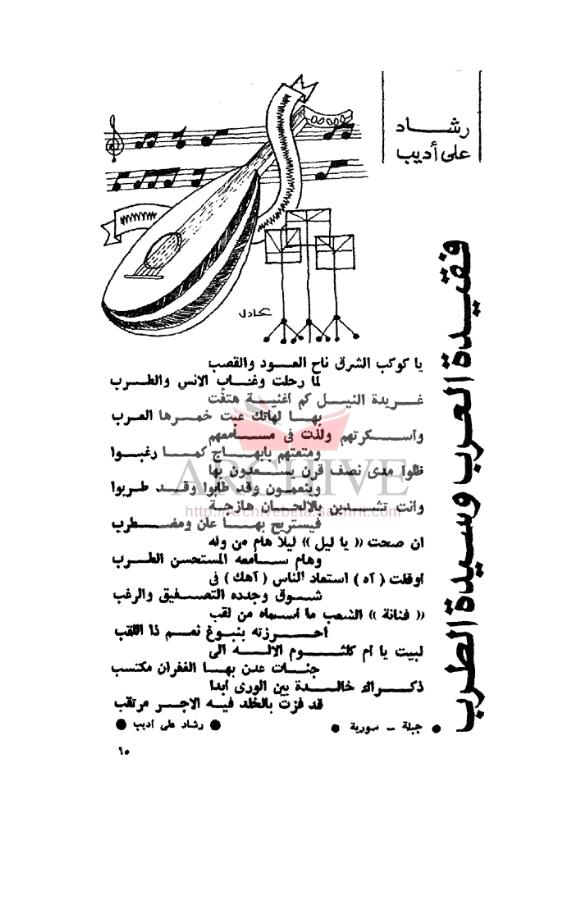 رشاد
على أديب
فقيدة العرب وسيدة الطرب
عادل
يا كوكب الشرق ناح العود والقصب
لما رحلت وغاب الانس والطرب
غريدة النيل كم اغنية هتفت
بها لهاتك عبت خمرها العرب
وأسكرتهم ولذت فى مسامعهم
ومتعتهم بابهاج كما رغبوا
ظلوا مدى نصف قرن يسعدون بها
وينعمون وقد طابوا وقد طربوا
وانت تشدين بالالحان هازجة
فيستريح بها عان ومضطرب
ان صحت « يا ليل » ليلا هام من وله
وهام سامعه المستحسن الطرب
أوقلت ( آه ) استعاد الناس ( آهك ) فى
شوق وجدده التصفيق والرغب
« فنانة » الشعب ما أسماه من لقب
أحرزته بنبوغ نعم ذا اللقب
لبيت يا أم كلثوم الاله الى
جنات عدن بها الغفران مكتسب
ذكراك خالدة بين الورى أبدا
قد فزت بالخلد فيه الاجر مرتقب
● جبلة - سورية ●
● رشاد على أديب ●
٦٥
ARCHIVE